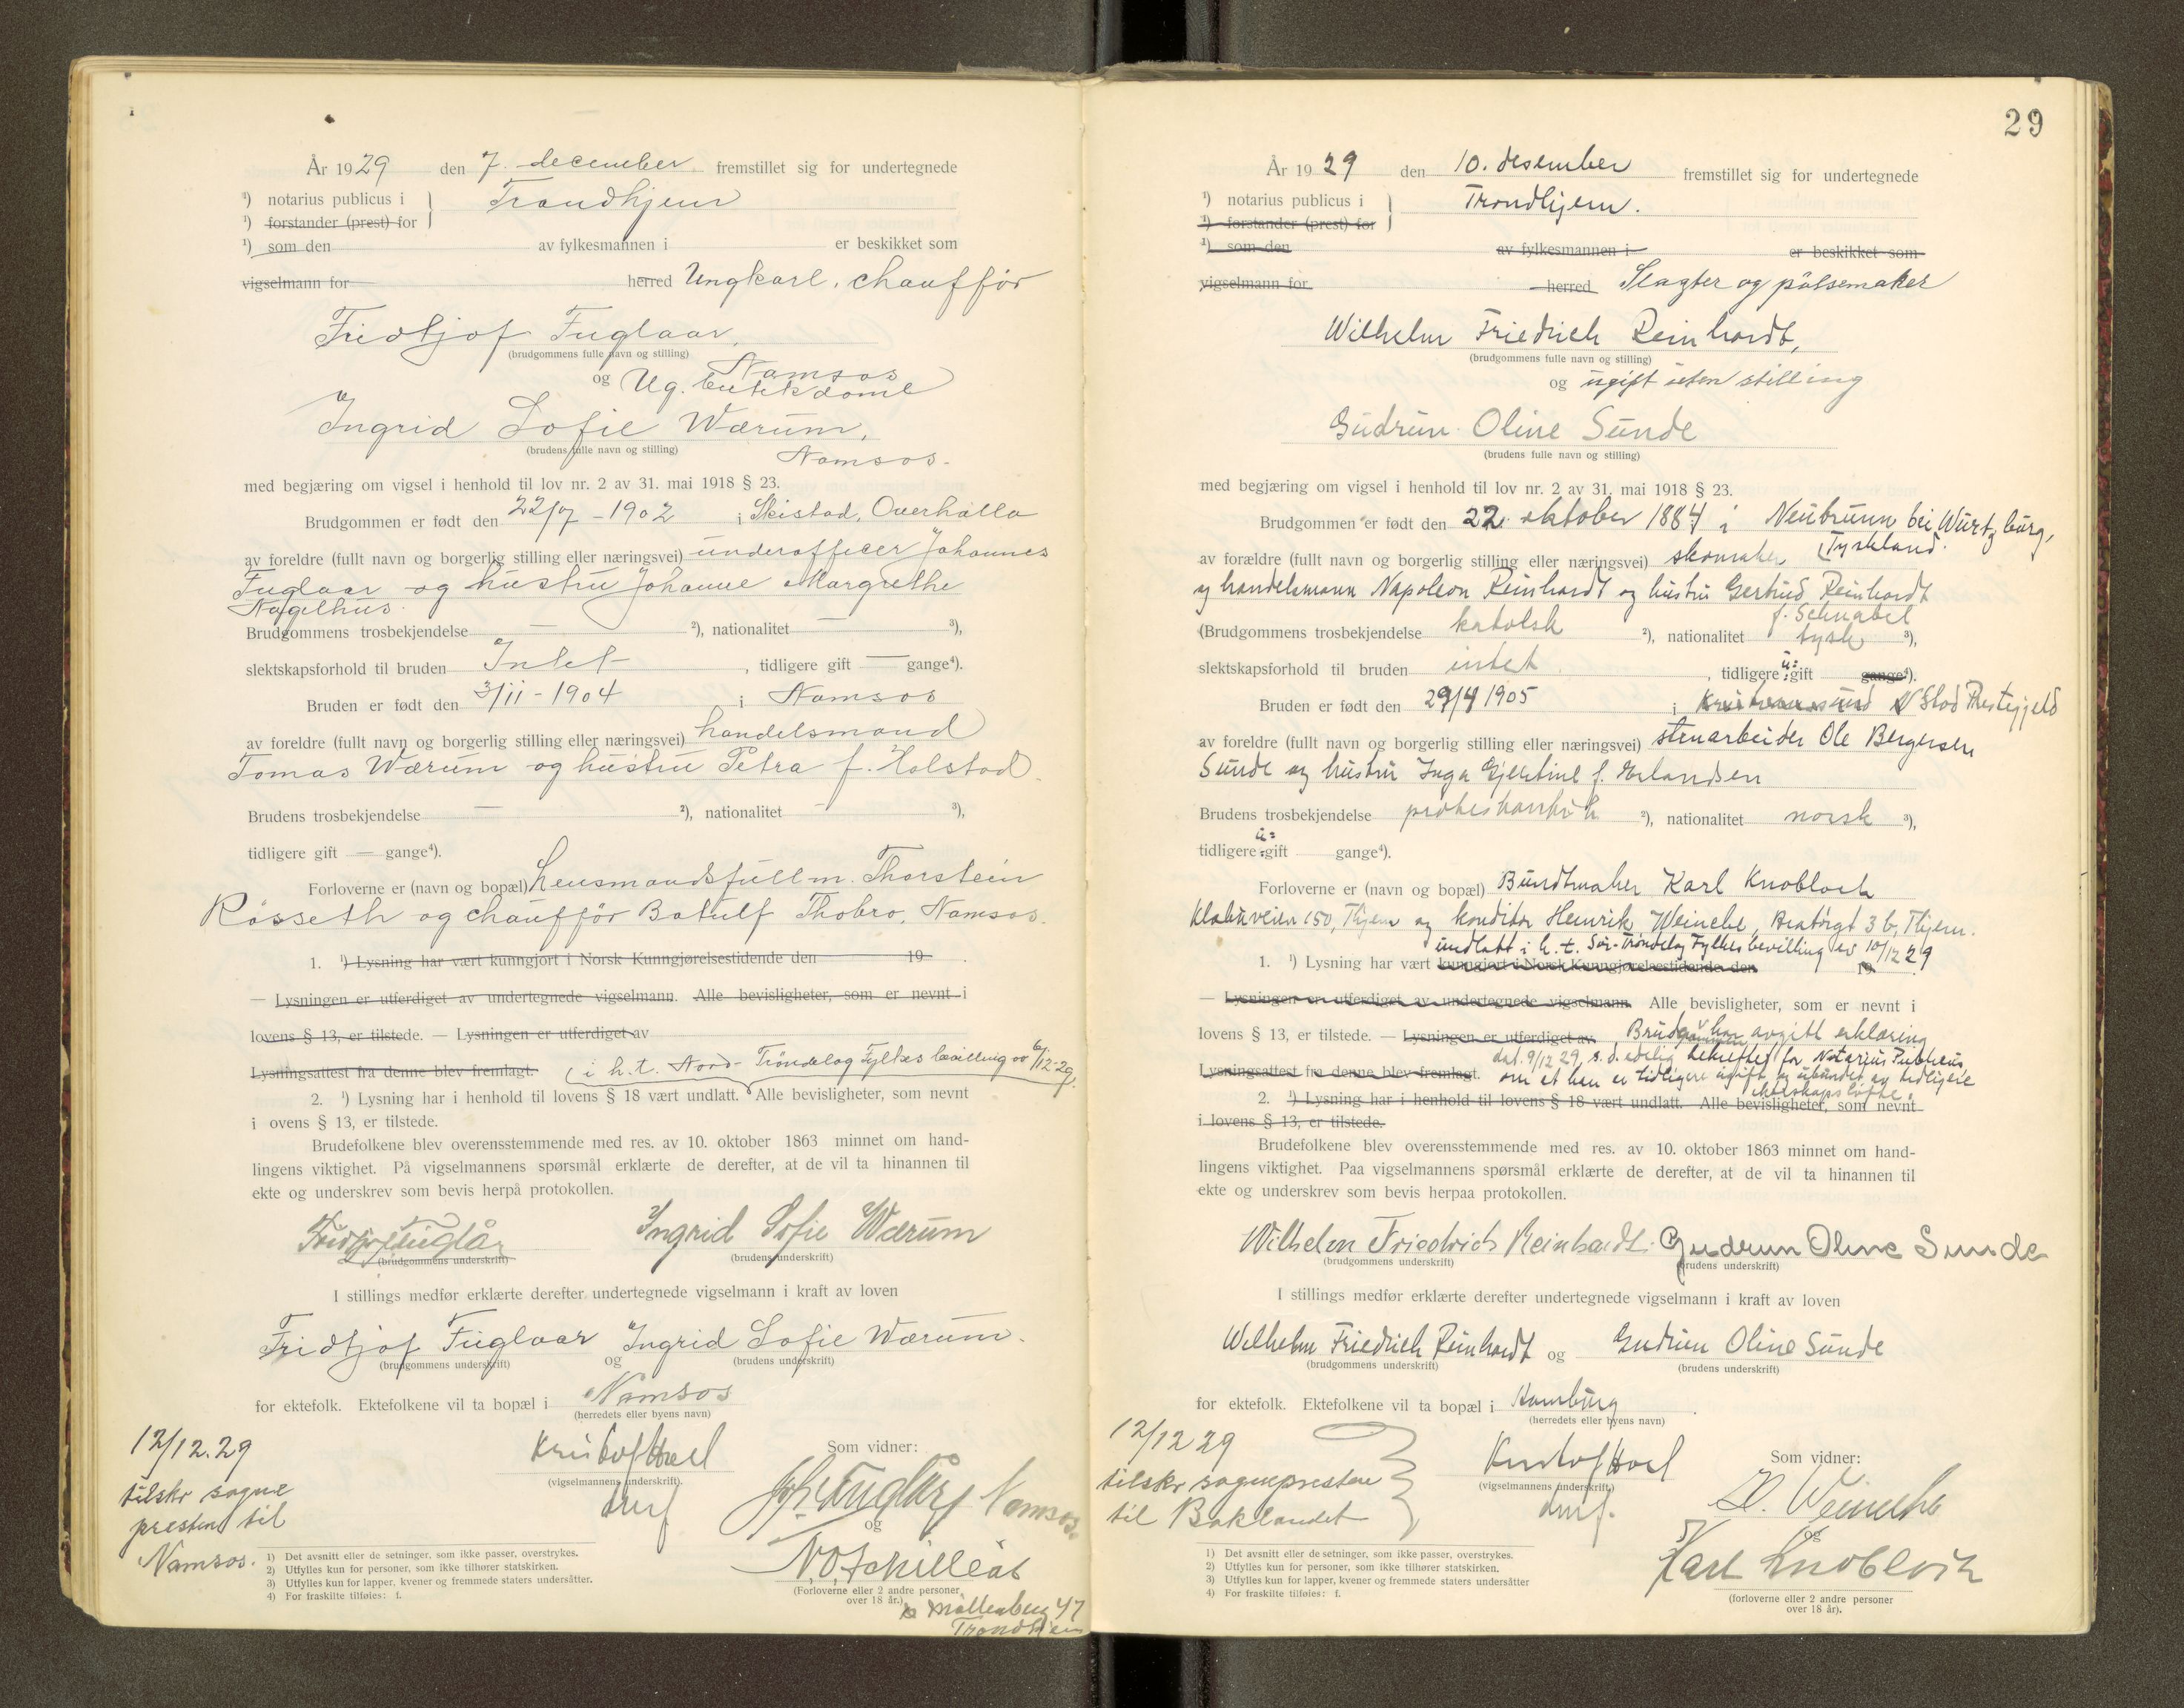 År 1929 den 7. december fremstillet sig for undertegnede
¹) notarius publicus i } Trondhjem
¹) forstander (prest) for
¹) som den av fylkesmannen i er beskikket som
vigselmann for herred Ungkarl, chauffør
Fridtjof Fuglaar,
(brudgommens fulle navn og stilling)
Namsos
og Ug. butikdame
Ingrid Sofie Wærum,
(brudens fulle navn og stilling)
Namsos.
med begjæring om vigsel i henhold til lov nr. 2 av 31. mai 1918 § 23.
Brudgommen er født den 22/7 - 1902 i Skistad, Overhalla
av foreldre (fullt navn og borgerlig stilling eller næringsvei) underofficer Johannes
Fuglaar og hustru Johanne Margrethe
Nagelhus.
Brudgommens trosbekjendelse — ²), nationalitet — ³),
slektskapsforhold til bruden Intet, tidligere gift — gange⁴).
Bruden er født den 3/11 - 1904 i Namsos
av foreldre (fullt navn og borgerlig stilling eller næringsvei) handelsmand
Tomas Wærum og hustru Petra f. Holstad.
Brudens trosbekjendelse — ²), nationalitet — ³),
tidligere gift — gange⁴).
Forloverne er (navn og bopæl) Lensmandsfullm. Thorstein
Røsseth og chauffør Botulf Thobro, Namsos.
1. ¹) Lysning har vært kunngjort i Norsk Kunngjørelsestidende den 19 .
— Lysningen er utferdiget av undertegnede vigselmann. Alle bevisligheter, som er nevnt i
lovens § 13, er tilstede. — Lysningen er utferdiget av
Lysningsattest fra denne blev fremlagt. (i h. t. Nord-Trøndelag Fylkes bevilling av 6/12-29.
2. ¹) Lysning har i henhold til lovens § 18 vært undlatt. Alle bevisligheter, som nevnt
i ovens § 13, er tilstede.
Brudefolkene blev overensstemmende med res. av 10. oktober 1863 minnet om hand-
lingens viktighet. På vigselmannens spørsmål erklærte de derefter, at de vil ta hinannen til
ekte og underskrev som bevis herpå protokollen.
Fridtjof Fuglår Ingrid Sofie Wærum
(brudgommens underskrift) (brudens underskrift)
I stillings medfør erklærte derefter undertegnede vigselmann i kraft av loven
Fridtjof Fuglaar og Ingrid Sofie Wærum.
(brudgommens underskrift) (brudens underskrift)
for ektefolk. Ektefolkene vil ta bopæl i Namsos
(herredets eller byens navn)
12/12.29
tilskr sogne
presten til
Namsos.
Kristof Hoel
(vigselmannens underskrift).
Som vidner:
Joh. Fuglår Namsos.
og
(Forloverne eller 2 andre personer
over 18 år.)
Møllenberg 47
Trondhjem
1) Det avsnitt eller de setninger, som ikke passer, overstrykes.
2) Utfylles kun for personer, som ikke tilhører statskirken.
3) Utfylles kun for lapper, kvener og fremmede staters undersåtter.
4) For fraskilte tilføies: f.
29
År 1929 den 10. desember fremstillet sig for undertegnede
¹) notarius publicus i } Trondhjem.
¹) forstander (prest) for
¹) som den av fylkesmannen i er beskikket som
vigselmann for herred Slagter og pølsemaker
Wilhelm Friedrich Reinhardt,
(brudgommens fulle navn og stilling)
og ugift uten stilling
Gudrun Oline Sunde
(brudens fulle navn og stilling)
med begjæring om vigsel i henhold til lov nr. 2 av 31. mai 1918 § 23.
Brudgommen er født den 22. oktober 1884 i Neubrunn bei Wurtzburg,
av forældre (fullt navn og borgerlig stilling eller næringsvei) skomaker (Tyskland.
og handelsmann Napoleon Reinhardt og hustru Gertrud Reinhardt
f. Schnabel
(Brudgommens trosbekjendelse katolsk ²), nationalitet tysk ³),
slektskapsforhold til bruden intet, tidligere u= gift gange⁴).
Bruden er født den 29/4 1905 i Kristiansund N Stod Prestegjeld
av foreldre (fullt navn og borgerlig stilling eller næringsvei) stenarbeider Ole Bergersen
Sunde og hustru Inga Gjertine f. Erlandsen
Brudens trosbekjendelse protestantisk ²), nationalitet norsk ³),
tidligere u= gift gange⁴).
Forloverne er (navn og bopæl) Bundtmaker Karl Knobloch
Klæbuveien 150, Thjem og konditor Henrik Weineke, Bratørgt 3 b, Thjem.
undlatt i h. t. Sør-Trøndelag Fylkes bevilling av 10/12 29
1. ¹) Lysning har vært kunngjort i Norsk Kunngjørelsestidende den 19
— Lysningen er utferdiget av undertegnede vigselmann. Alle bevisligheter, som er nevnt i
lovens § 13, er tilstede. — Lysningen er utferdiget av Brudgommen har avgitt erklæring
dat. 9/12 29, s. d. edelig bekreftet for Notarius Publicus
Lysningsattest fra denne blev fremlagt. om at han er tidligere ugift og ubundet av tidligere
ekteskapsløfte.
2. ¹) Lysning har i henhold til lovens § 18 vært undlatt. Alle bevisligheter, som nevnt
i lovens § 13, er tilstede.
Brudefolkene blev overensstemmende med res. av 10. oktober 1863 minnet om hand-
lingens viktighet. Paa vigselmannens spørsmål erklærte de derefter, at de vil ta hinannen til
ekte og underskrev som bevis herpaa protokollen.
Wilhelm Friedrich Reinhardt. Gudrun Oline Sunde
(brudgommens underskrift) (brudens underskrift)
I stillings medfør erklærte derefter undertegnede vigselmann i kraft av loven
Wilhelm Friedrich Reinhardt og Gudrun Oline Sunde
(brudgommens underskrift) (brudens underskrift)
for ektefolk. Ektefolkene vil ta bopæl i Hamburg.
(herredets eller byens navn)
12/12 29
tilskr sognepresten
til Baklandet
Kristof Hoel
(vigselmannens underskrift)
Som vidner:
H. Weineke
og
Karl Knobloch
(forloverne eller 2 andre personer
over 18 år).
1) Det avsnitt eller de setninger, som ikke passer, overstrykes.
2) Utfylles kun for personer, som ikke tilhører statskirken.
3) Utfylles kun for lapper, kvener og fremmede staters undersåtter
4) For fraskilte tilføies: f.